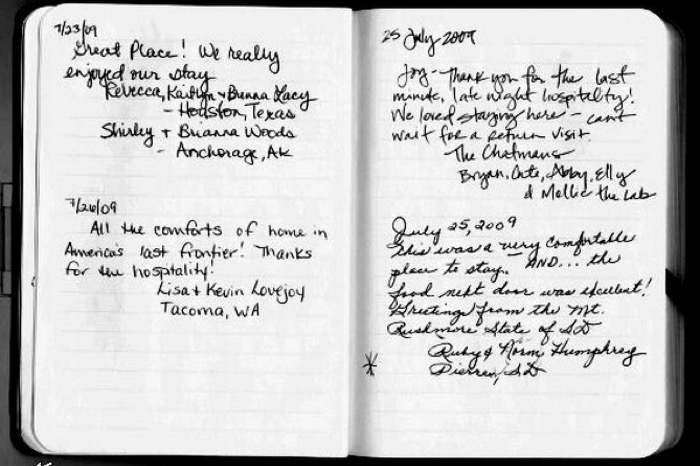 7/23/09
Great Place! We really
enjoyed our stay
Rebecca, Kaitlyn + Brenna Lacy
- Houston, Texas
Shirley + Brianna Woods
- Anchorage, AK
7/26/09
All the comforts of home in
America's last frontier! Thanks
for the hospitality!
Lisa + Kevin Lovejoy
Tacoma, WA
25 July 2009
Joy - Thank you for the last
minute, late night hospitality!
We loved staying here - can't
wait for a return visit.
The Chatmans
Bryan, Abby, Elly
& Mollie the Lab
July 25, 2009
This was a very comfortable
place to stay. AND... the
food next door was excellent!
Greetings from the Mt.
Rushmore State of SD
Ruby & Norm Humphrey
Pierre, SD